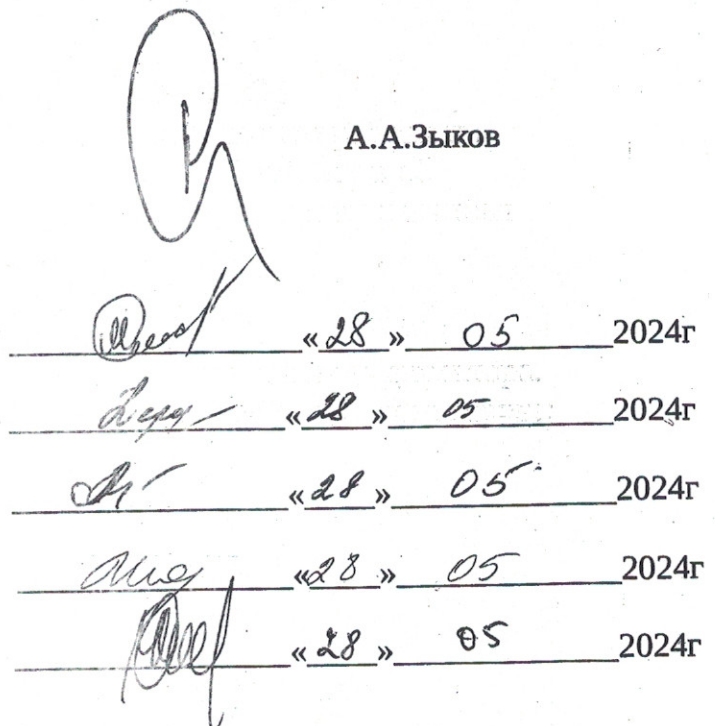 А.А.Зыков
«28» 05 2024г
«28» 05 2024г
«28» 05 2024г
«28» 05 2024г
«28» 05 2024г